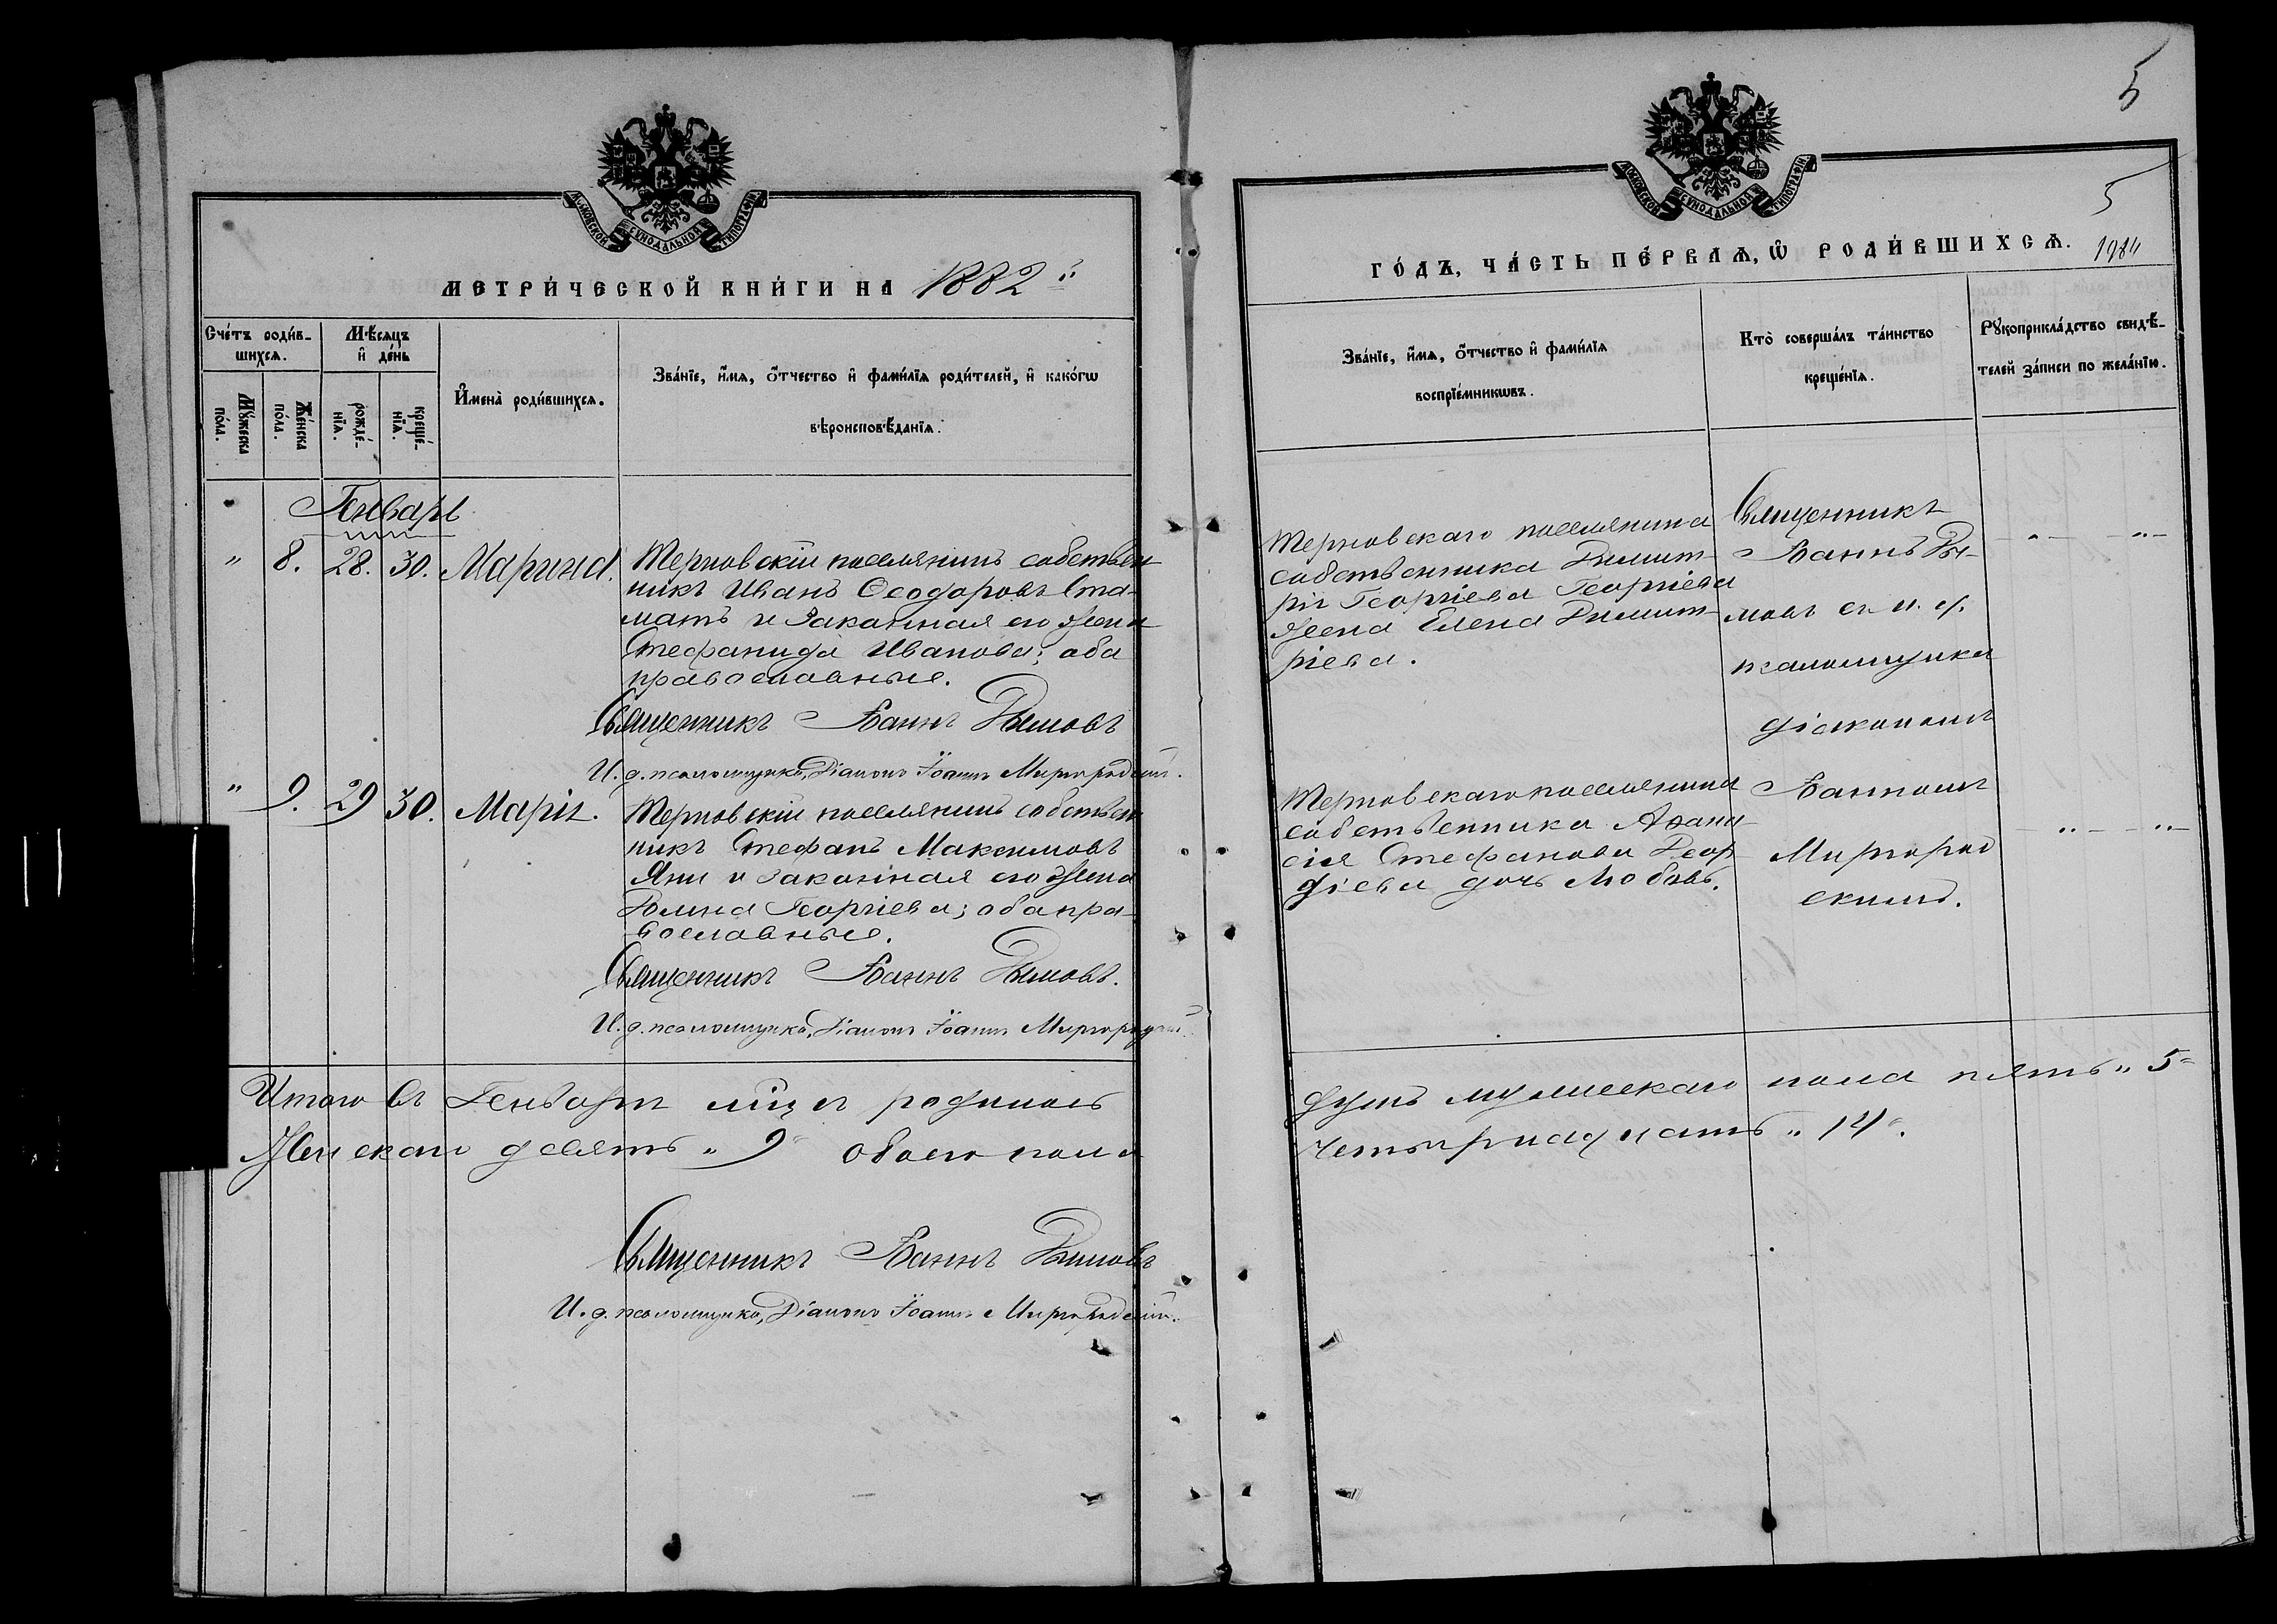 5
МОСКОВСКОЙ СѴНОДАЛЬНОЙ ТИПОГРАФІИ
МЕТРИ́ЧЕСКОЙ КНИ́ГИ НА 1882 й
Сче́тъ роди́в-
шихсѧ.
Мѣ́сѧцъ
и҆ де́нь
Мꙋ́жеска
по́ла.
Же́нска
по́ла.
рожде́-
нїѧ.
креще́-
нїѧ.
И҆мена̀ роди́вшихсѧ.
Зва́нїе, и҆́мѧ, ѻ҆́тчество и҆ фами́лїѧ роди́телей, и҆ како́гѡ
вѣроисповѣ́данїѧ.
Генварь
" 8. 28. 30. Марина.
Терновскій поселянинъ собствен
никъ Иванъ Ѳеодоровъ Ста-
матъ и законная его жена
Стефанида Иванова; оба
православные.
Священникъ Іоаннъ Дымовъ
И. д. псаломщика, Діаконъ Іоаннъ Миргородскій.
" 9. 29 30. Марія.
Терновскій поселянинъ собствен
никъ Стефанъ Максимовъ
Яни и законная его жена
Георгіева; оба пра-
вославные.
Священникъ Іоаннъ Дымовъ.
И. д. псаломщика, Діаконъ Іоаннъ Миргородскій
Итого въ Генварѣ мцѣ родилось
Женскаго девять " 9 " обоего пола
Священникъ Іоаннъ Дымовъ
И. д. псаломщика, Діаконъ Іоаннъ Миргородскій.
МОСКОВСКОЙ СѴНОДАЛЬНОЙ ТИПОГРАФІИ
5
ГО́ДЪ, ЧА́СТЬ ПЕ́РВАѦ, Ѡ҆ РОДИ́ВШИХСѦ. 1984
Зва́нїе, и҆́мѧ, ѻ҆́тчество и҆ фами́лїѧ
воспрїе́мникѡвъ.
Кто̀ соверша́лъ та́инство
креще́нїѧ.
Рꙋкоприкла́дство свидѣ́-
телей за́писи по жела́нїю.
Терновскаго поселянина
собственника Димит-
рія Георгіева Георгіева
жена Елена Димит-
ріева.
Священникъ
Іоаннъ Ды-
мовъ съ и. д.
псаломщика
діакономъ
Іоанномъ
Миргород
скимъ.
Терновскаго поселянина
собственника Аѳана
сія Стефанова
дочь Любовь.
душъ мужескаго пола пять " 5 "
четырнадцать " 14 ".